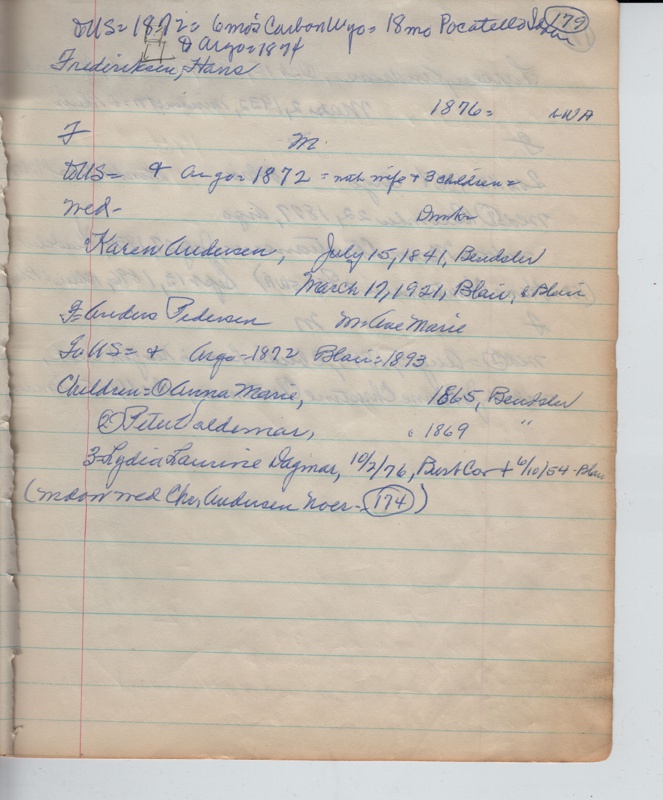 to US = 1872 = 6 mo's Carbon Wyo = 18 mo Pocatello 179
& Argo = 1874
Frederiksen, Hans
1876 =
F M.
to US = & Argo = 1872 = with wife + 3 children =
Wed -
Karen Andersen, July 15, 1841, Bendslev
March 17, 1921, Blair, Blair
F = Anders Pedersen M = Ane Marie
To US = & Argo = 1872 Blair = 1893
Children = ① Anna Marie, 1865, Bendslev
② Peter Valdemar, 1869 "
3 = Lydia Laurine Dagmar, 10/2/76, Burt Co + 6/10/54 - Blair
( wed Chr Andersen Noer - 174 )